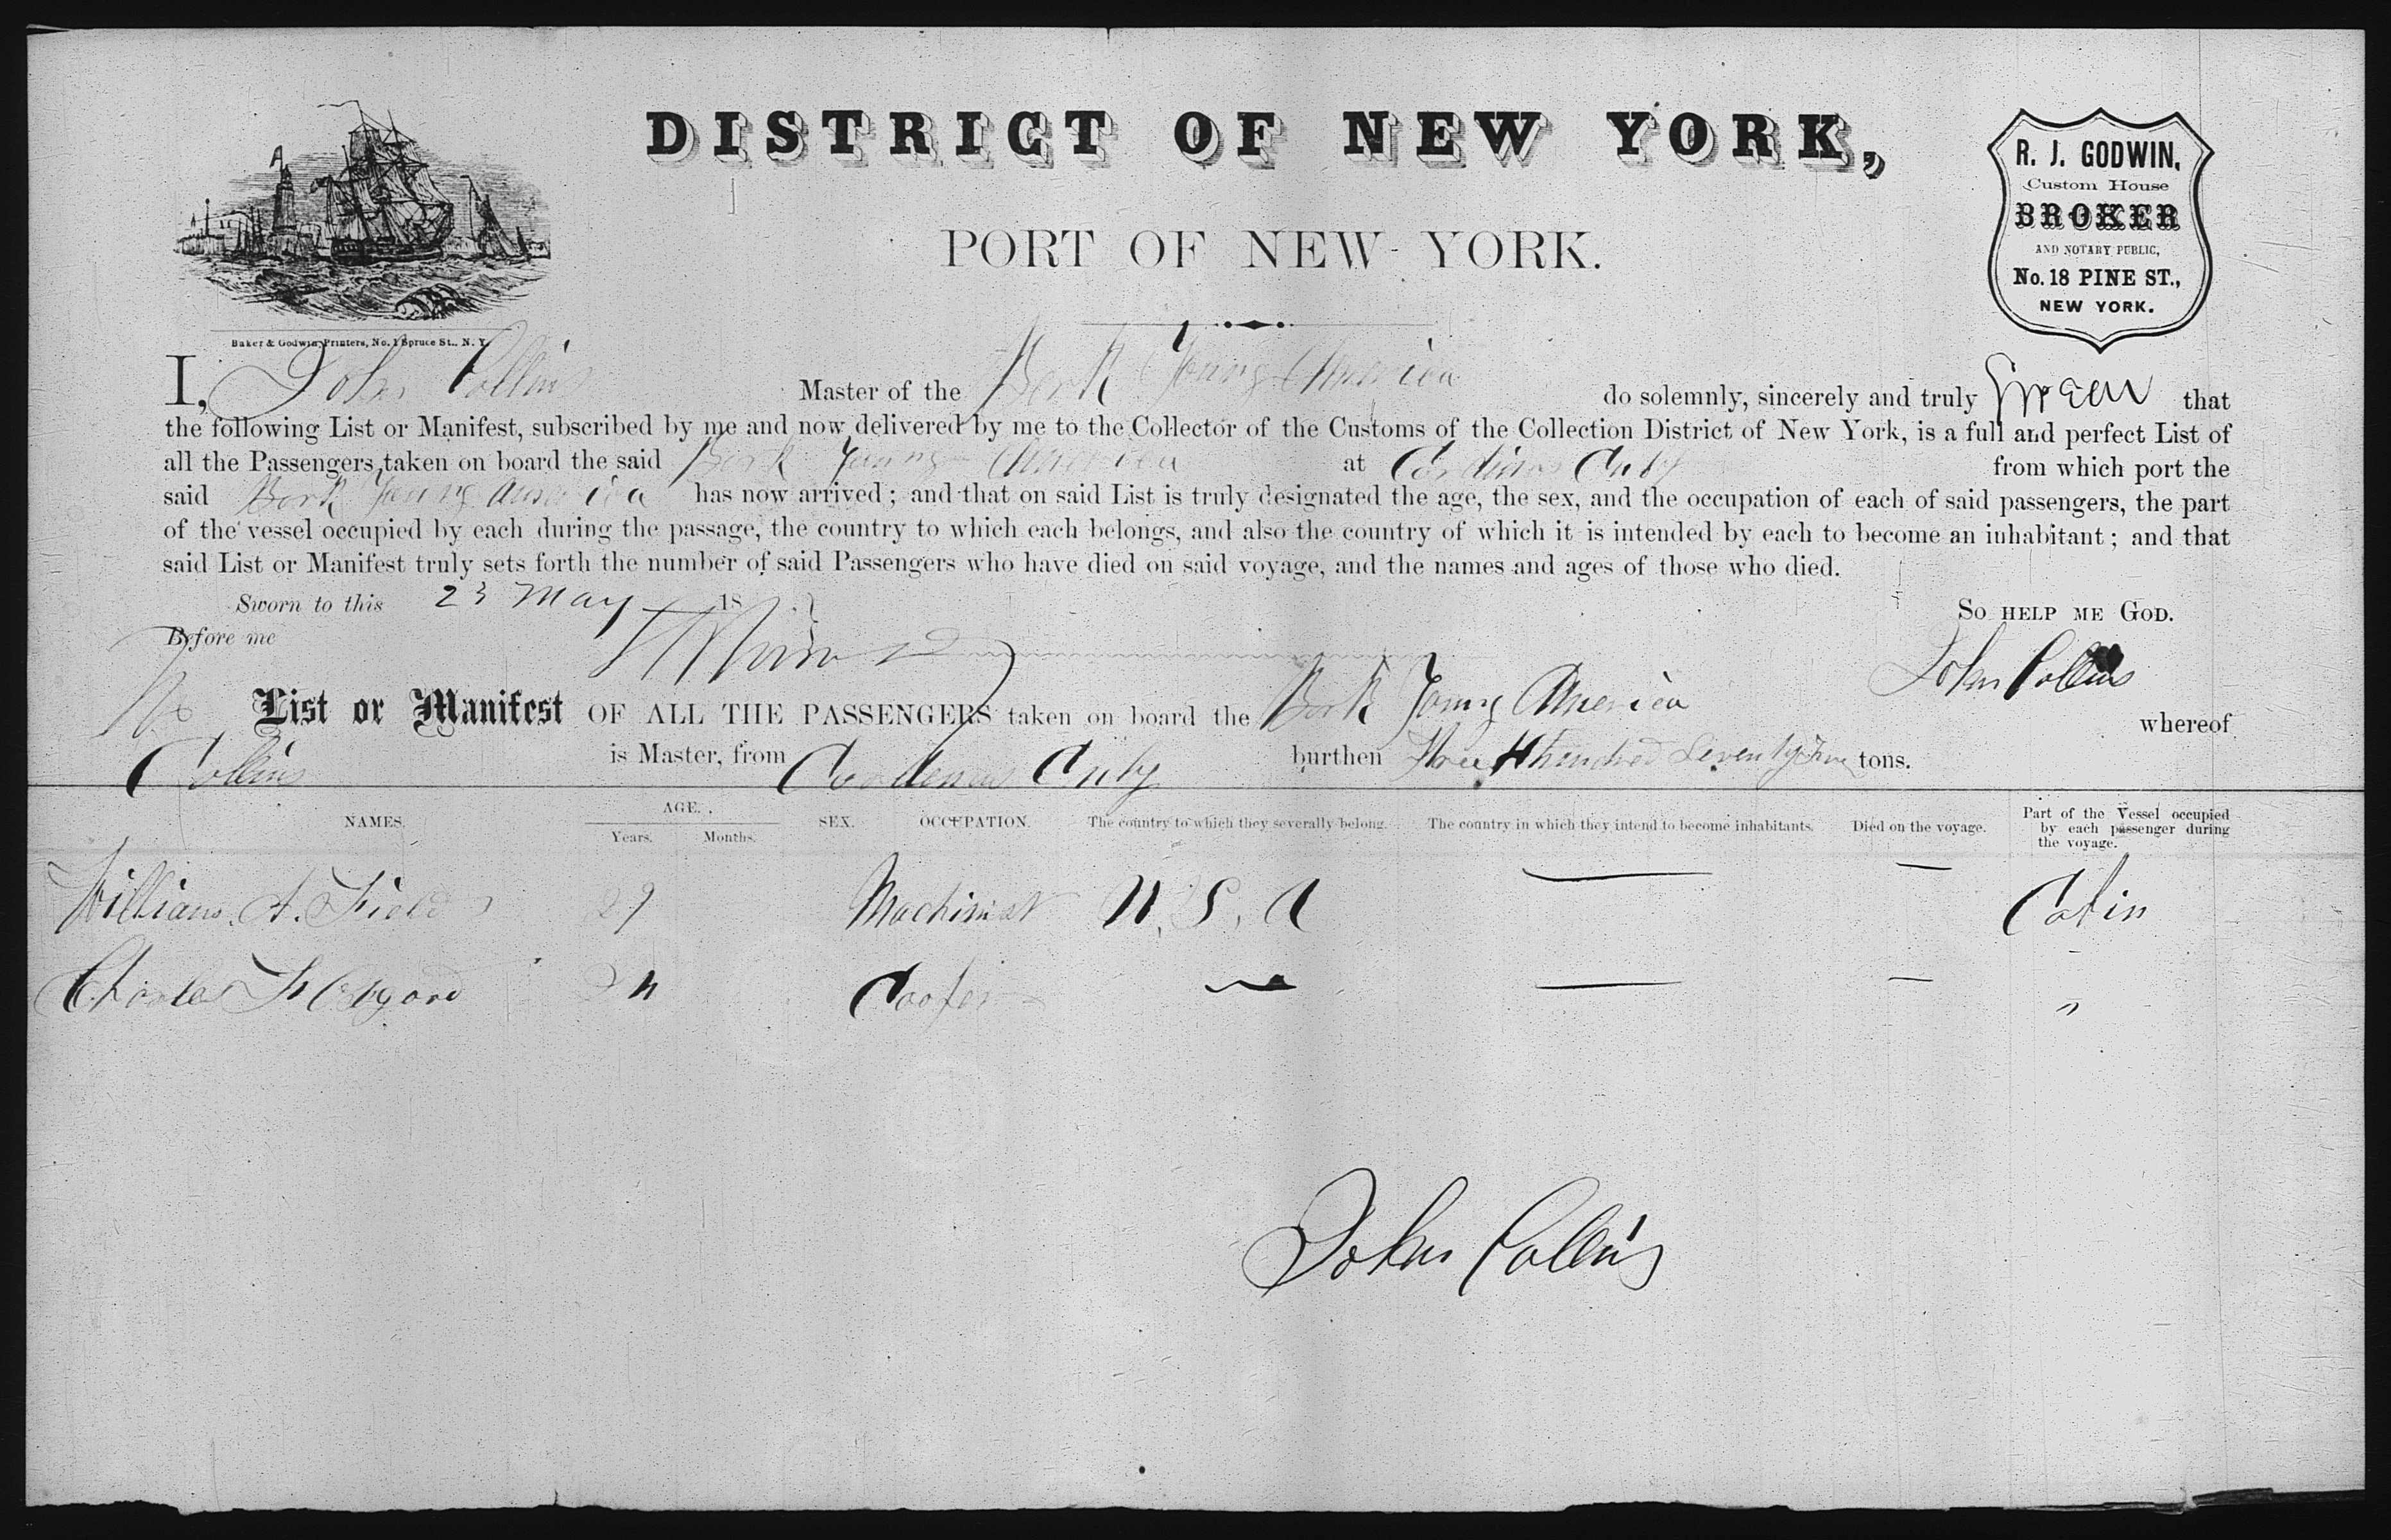 DISTRICT OF NEW YORK,
PORT OF NEW YORK.
R. J. GODWIN,
Custom House
BROKER
AND NOTARY PUBLIC,
No. 18 PINE ST.,
NEW YORK.
Baker & Godwin, Printers, No. 1 Spruce St., N. Y.
I, John Collins Master of the Bark Young America do solemnly, sincerely and truly swear that
the following List or Manifest, subscribed by me and now delivered by me to the Collector of the Customs of the Collection District of New York, is a full and perfect List of
all the Passengers taken on board the said Bark Young America at Cardinas Cuby from which port the
said Bark Young America has now arrived; and that on said List is truly designated the age, the sex, and the occupation of each of said passengers, the part
of the vessel occupied by each during the passage, the country to which each belongs, and also the country of which it is intended by each to become an inhabitant; and that
said List or Manifest truly sets forth the number of said Passengers who have died on said voyage, and the names and ages of those who died.
Sworn to this 23 May 18
So help me God.
Before me
John Collins
List or Manifest OF ALL THE PASSENGERS taken on board the Bark Young America whereof
Collins is Master, from Cardenas Cuby burthen Three Hundred Seventy Five tons.
NAMES. AGE. Years. Months. SEX. OCCUPATION. The country to which they severally belong. The country in which they intend to become inhabitants. Died on the voyage. Part of the Vessel occupied by each passenger during the voyage.
William A. Field 29 Machinist U. S. A — — Cabin
Charles 24 Cooper — — "
John Collins